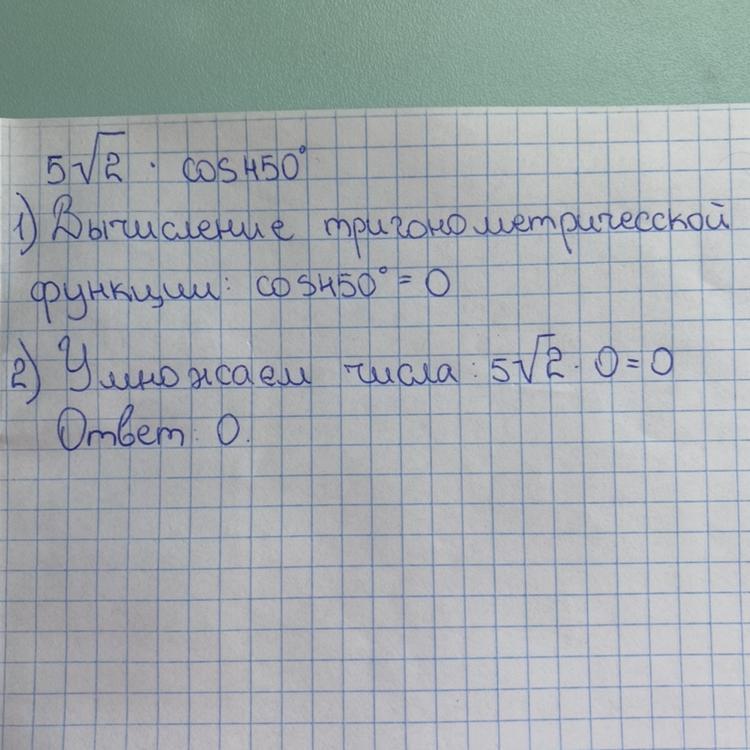 5√2 · cos450°
1) Вычисление тригонометрической
функции: cos450° = 0
2) Умножаем числа: 5√2 · 0 = 0
Ответ: 0.